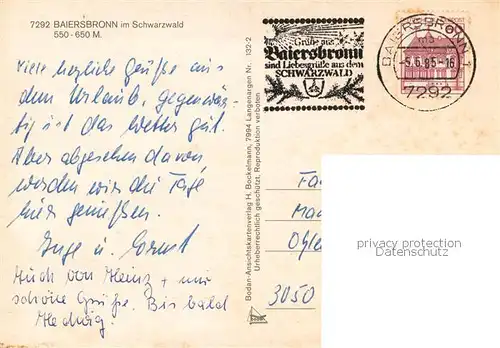 7292 BAIERSBRONN im Schwarzwald
550 - 650 M.
Viele herzliche Grüße aus
dem Urlaub, gegenwär-
tig ist das Wetter gut.
Aber abgesehen davon
werden wir die Tage
hier genießen.
Inge u. Ernst
Auch von Heinz + mir
schöne Grüße. Bis bald
Hedwig.
Bodan-Ansichtskartenverlag H. Bockelmann, 7994 Langenargen Nr. 132-2
Urheberrechtlich geschützt, Reproduktion verboten
Grüße aus
Baiersbronn
sind Liebesgrüße aus dem
SCHWARZWALD
BAIERSBRONN 1
-5.6.85-16
7292
Fa
Ma
3050
privacy protection
Datenschutz